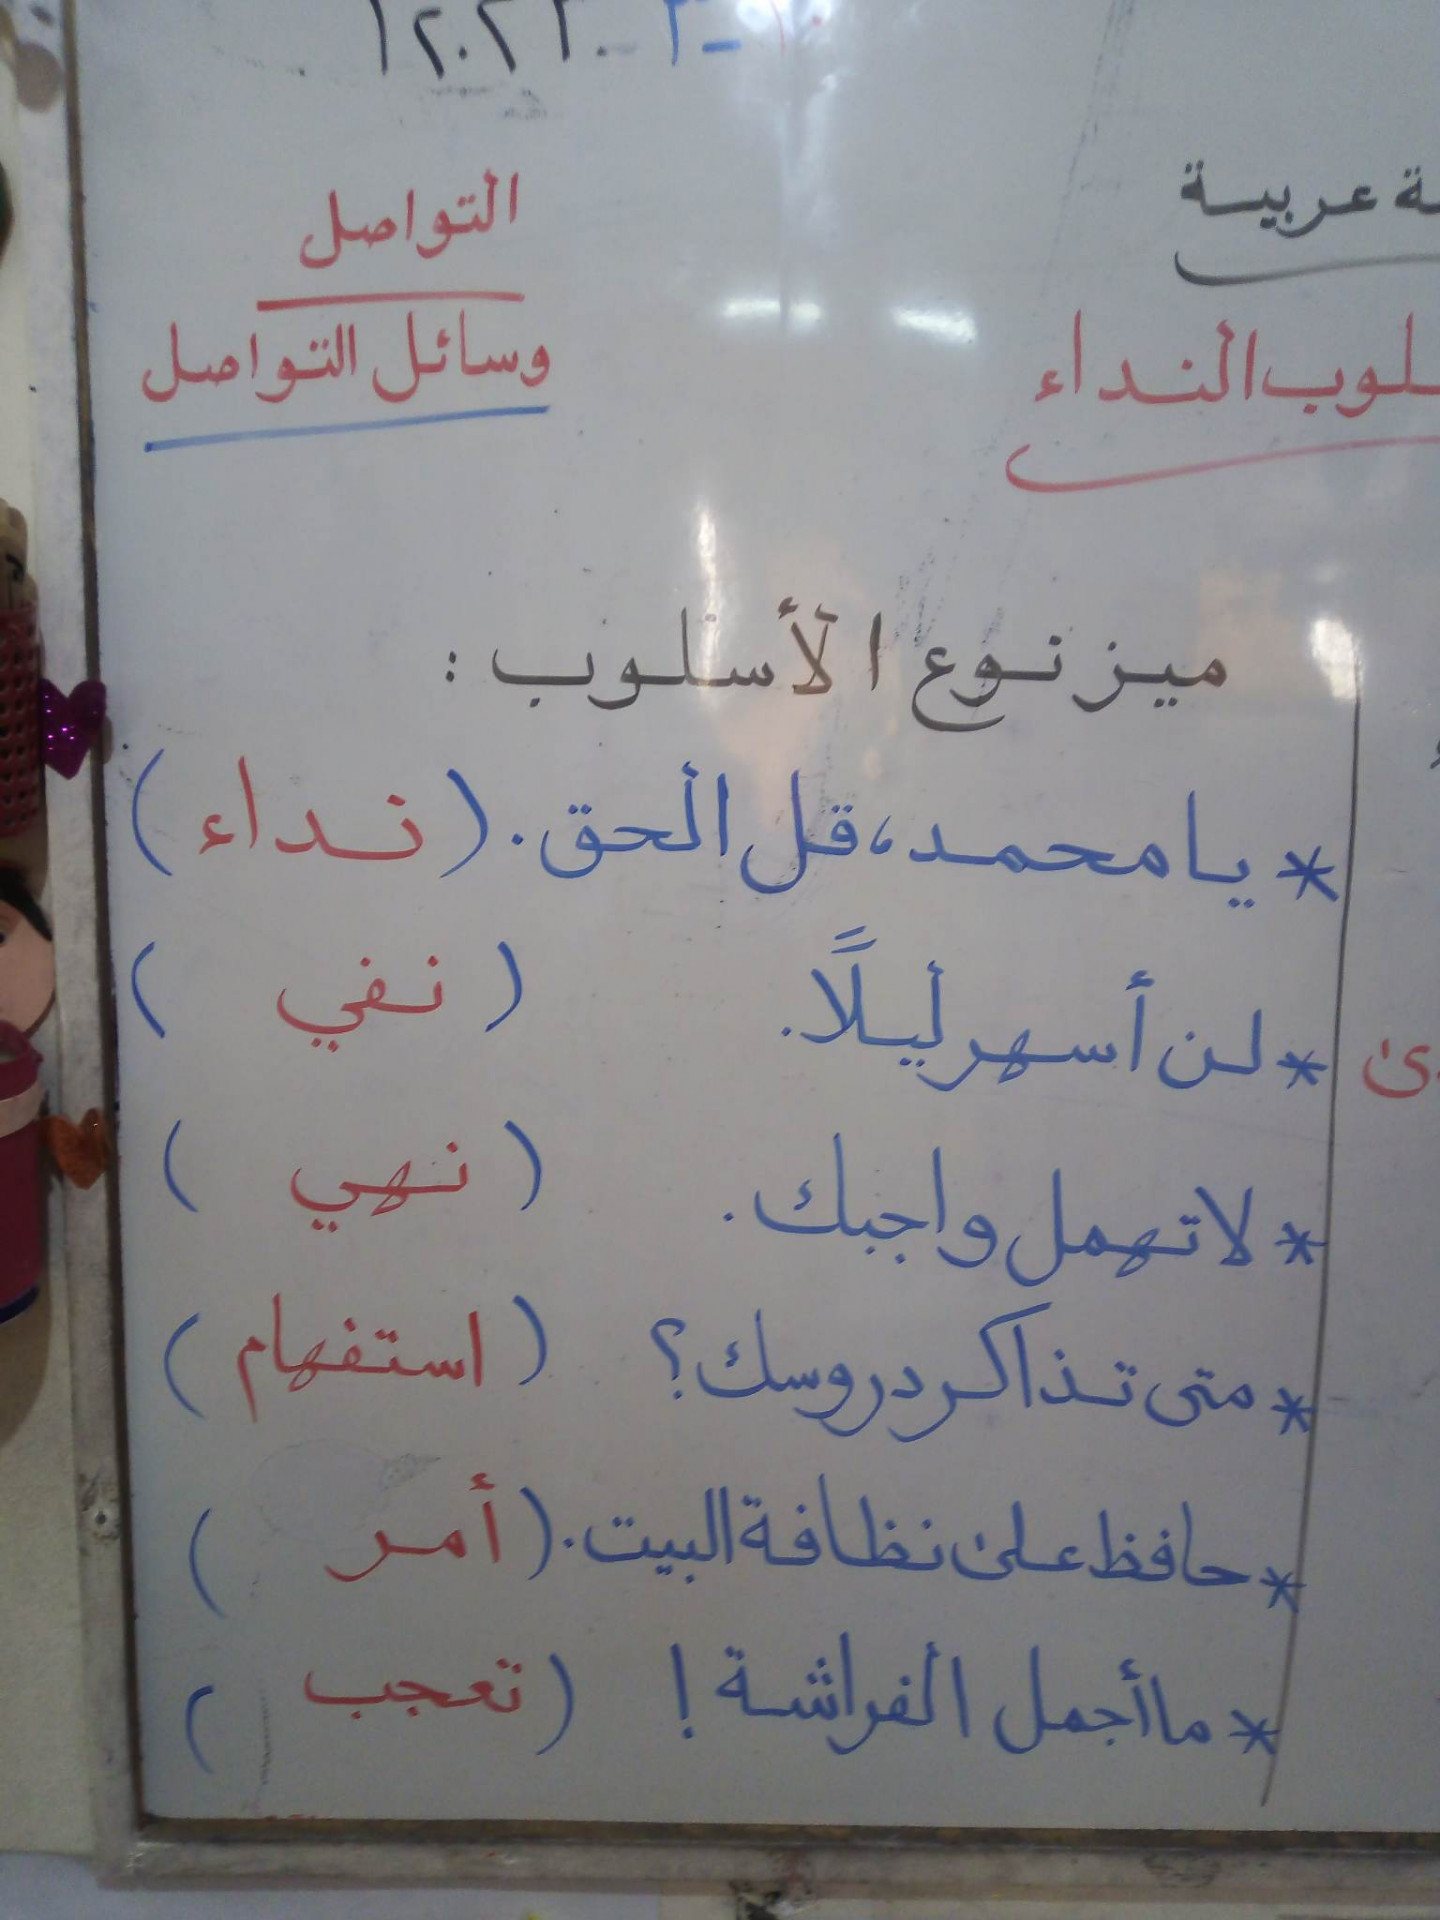 التواصل
وسائل التواصل
عربية
النداء
ميز نوع الأسلوب :
* يا محمد، قل الحق. (نداء)
* لن أسهر ليلًا. (نفي)
* لا تهمل واجبك. (نهي)
* متى تذاكر دروسك؟ (استفهام)
* حافظ على نظافة البيت. (أمر)
* ما أجمل الفراشة! (تعجب)